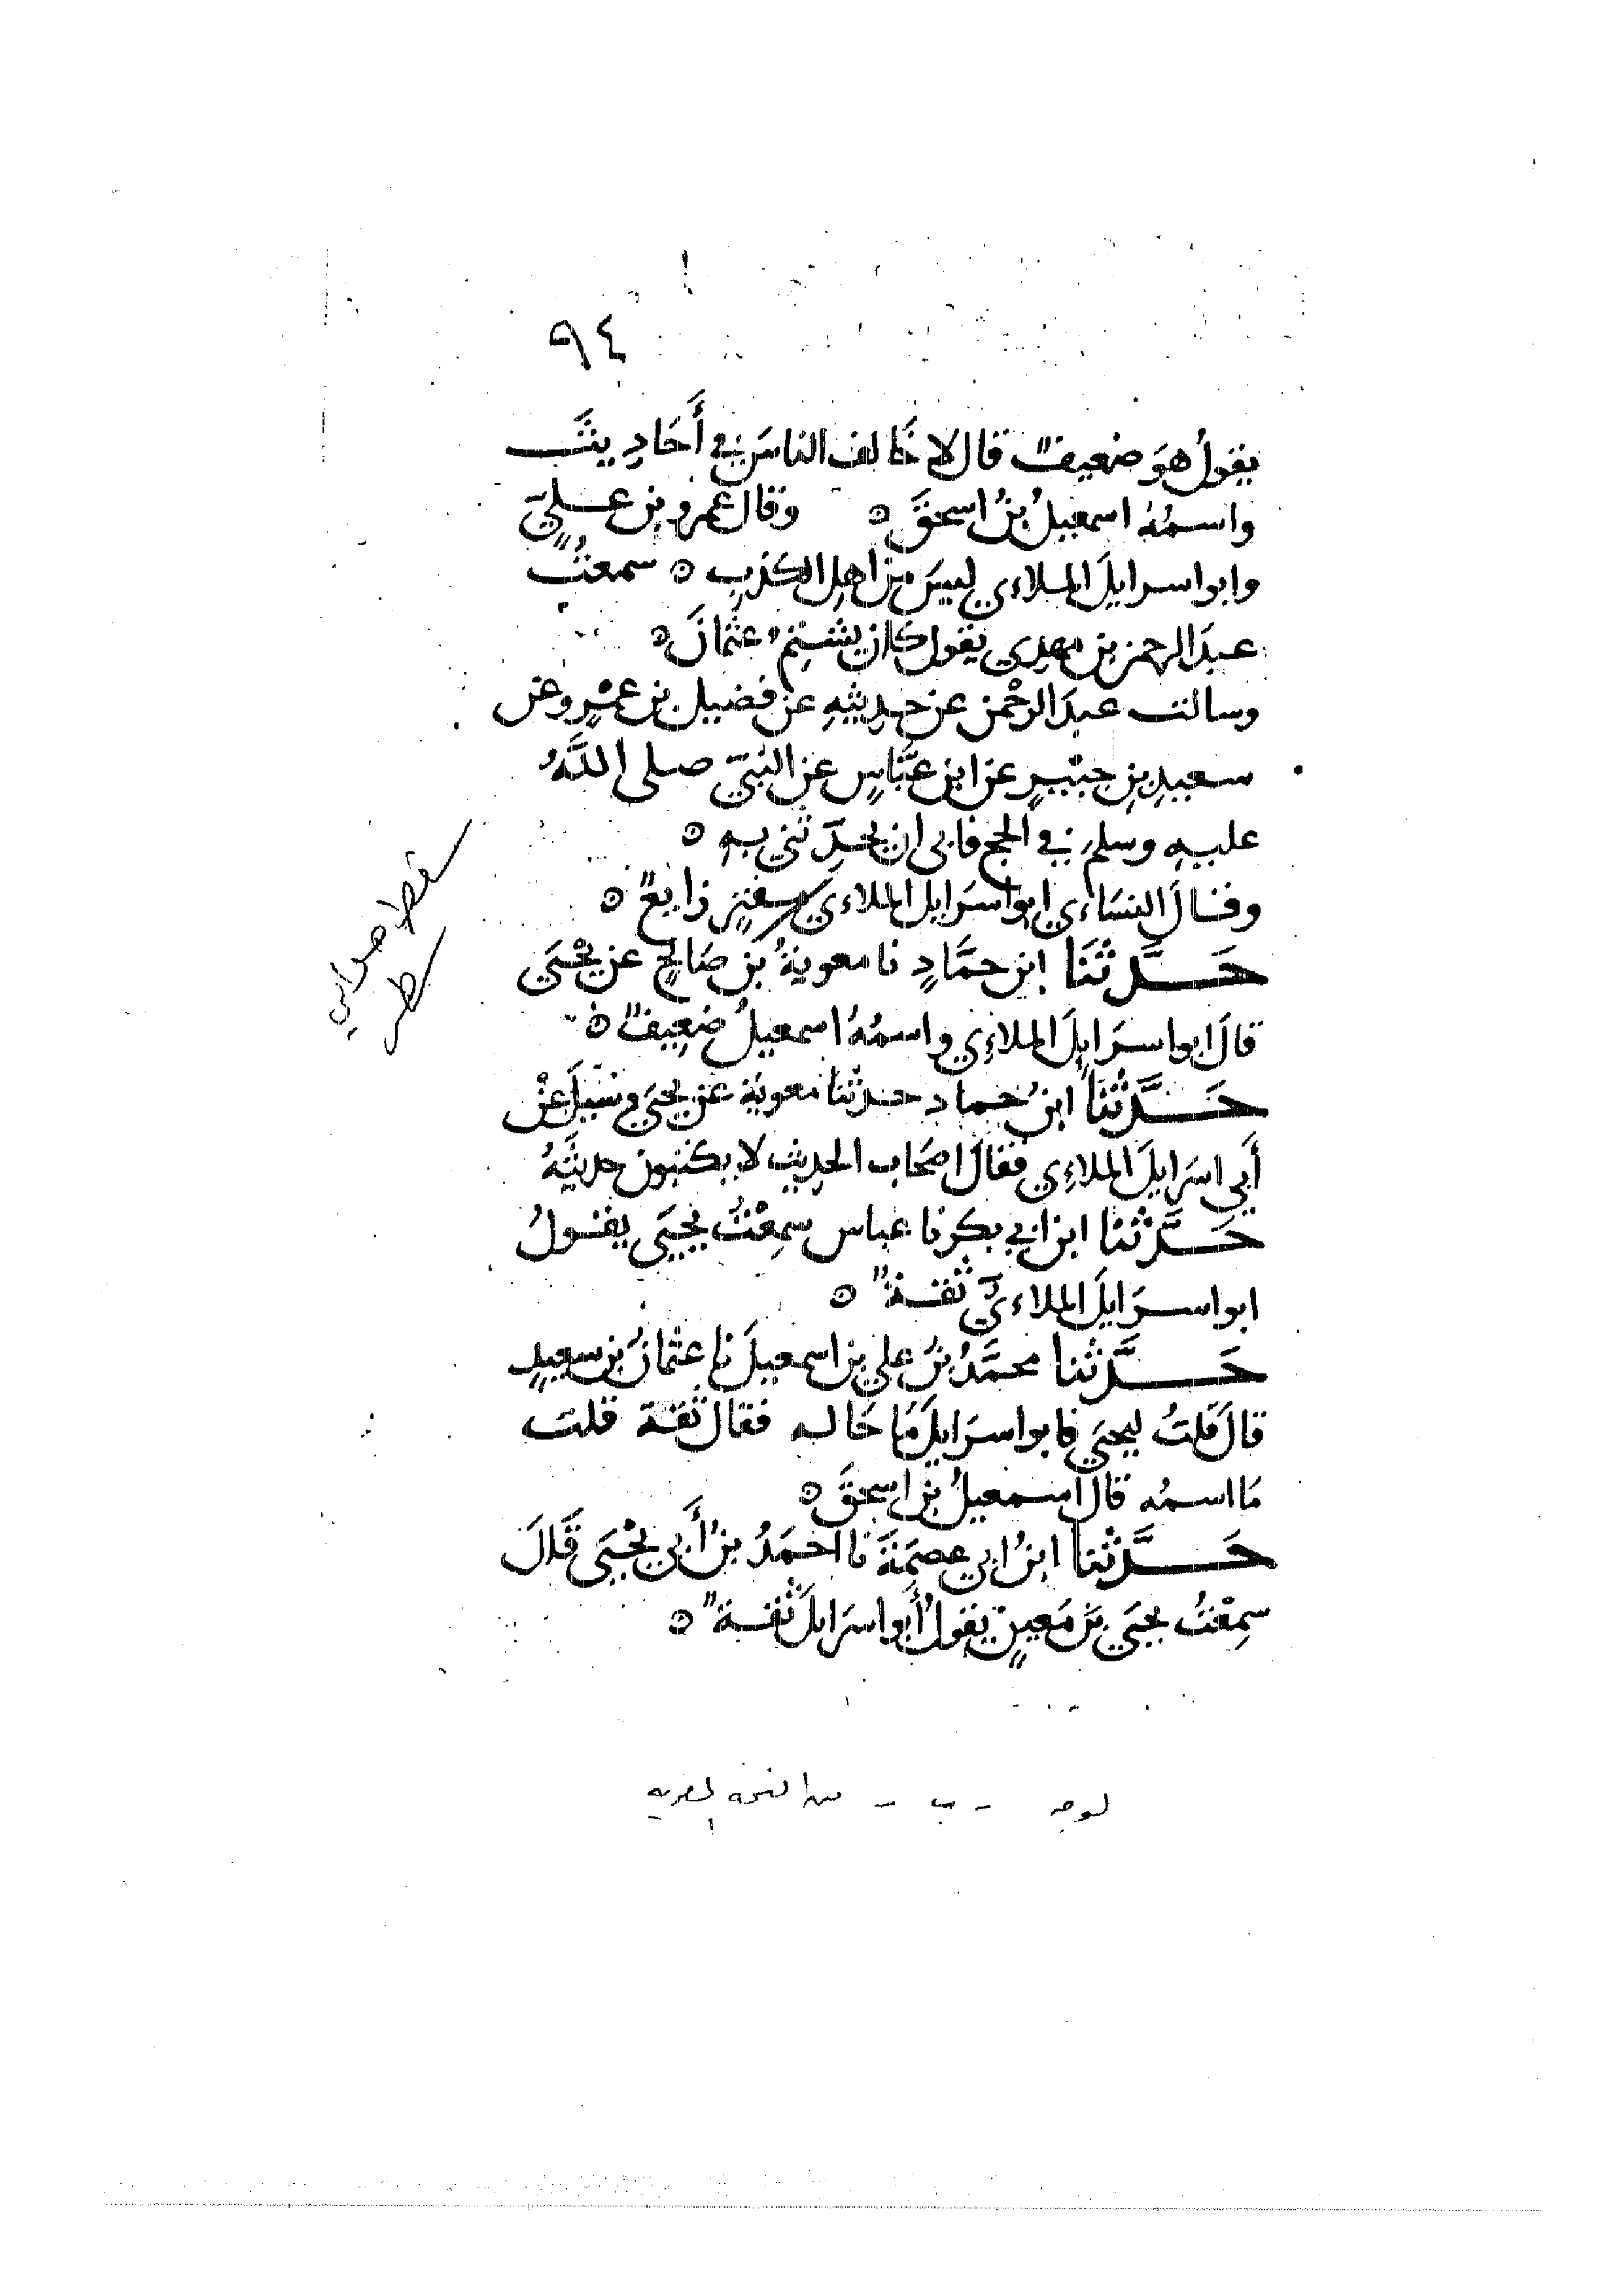 ٩٤
يقولُ هوَ ضعيفٌ قال لا خالف الناسَ في أَحَادِيثَ
واسمُهُ اسمعيلُ بنُ اسحقَ ه وقال عمرو بن عليّ
وابو اسرايلَ الملاءي ليسَ من اهلِ الكذبِ ه سمعتُ
عبدَ الرحمن بن مهدي يقول كان يشتم عثمانَ ه
وسالت عبدَ الرحْمن عن حديثهِ عن فضيل بن عمْرٍو عن
سعيدِ بنِ جبيْرٍ عن ابن عبَّاسٍ عن النبيّ صلى اللَّهُ
عليهِ وسلم في الحج فابى ان يحدِّثني بهِ ه
وقالَ النسَاءي ابو اسرَايل الملاءي زايغٌ ه
حَدَّثَنَا ابن حمَّادٍ نا معويةُ بن صَالحٍ عن يحْيَي
قالَ ابو اسرَايلَ الملاءِي واسمُهُ اسمعيلُ ضعِيفٌ ه
حَدَّثَنَا ابنُ حماد حدثنا معوية عن يحيَي وسُيِلَ عنْ
أَبي اسرَايلَ الملاءِي فقالَ اصحَاب الحديث لا يكتبون حديثَهُ
حَدَّثنا ابن ابي بكر نا عباس سمِعْتُ يحيَى يقولُ
ابو اسرَايلَ الملاءيّ ثقةٌ ه
حَدَّثنا محمَّدُ بنُ علي بن اسمعيلَ نا عثمانُ بن سعيدٍ
قالَ قلتُ ليحيَي فابو اسرَايلَ مَا حَاله فقال ثقة قلت
مَا اسمُه قال اسمعيلُ بن اسحقَ ه
حَدَّثنا ابنُ ابي عصمَةَ نا احمَدُ بنُ أَبي يحْيَى قَالَ
سمِعْتُ يحيَي بنَ مَعينٍ يقولُ أَبو اسرَايلَ ثقةٌ ه
لوحه - ب - من النسخه المصريه